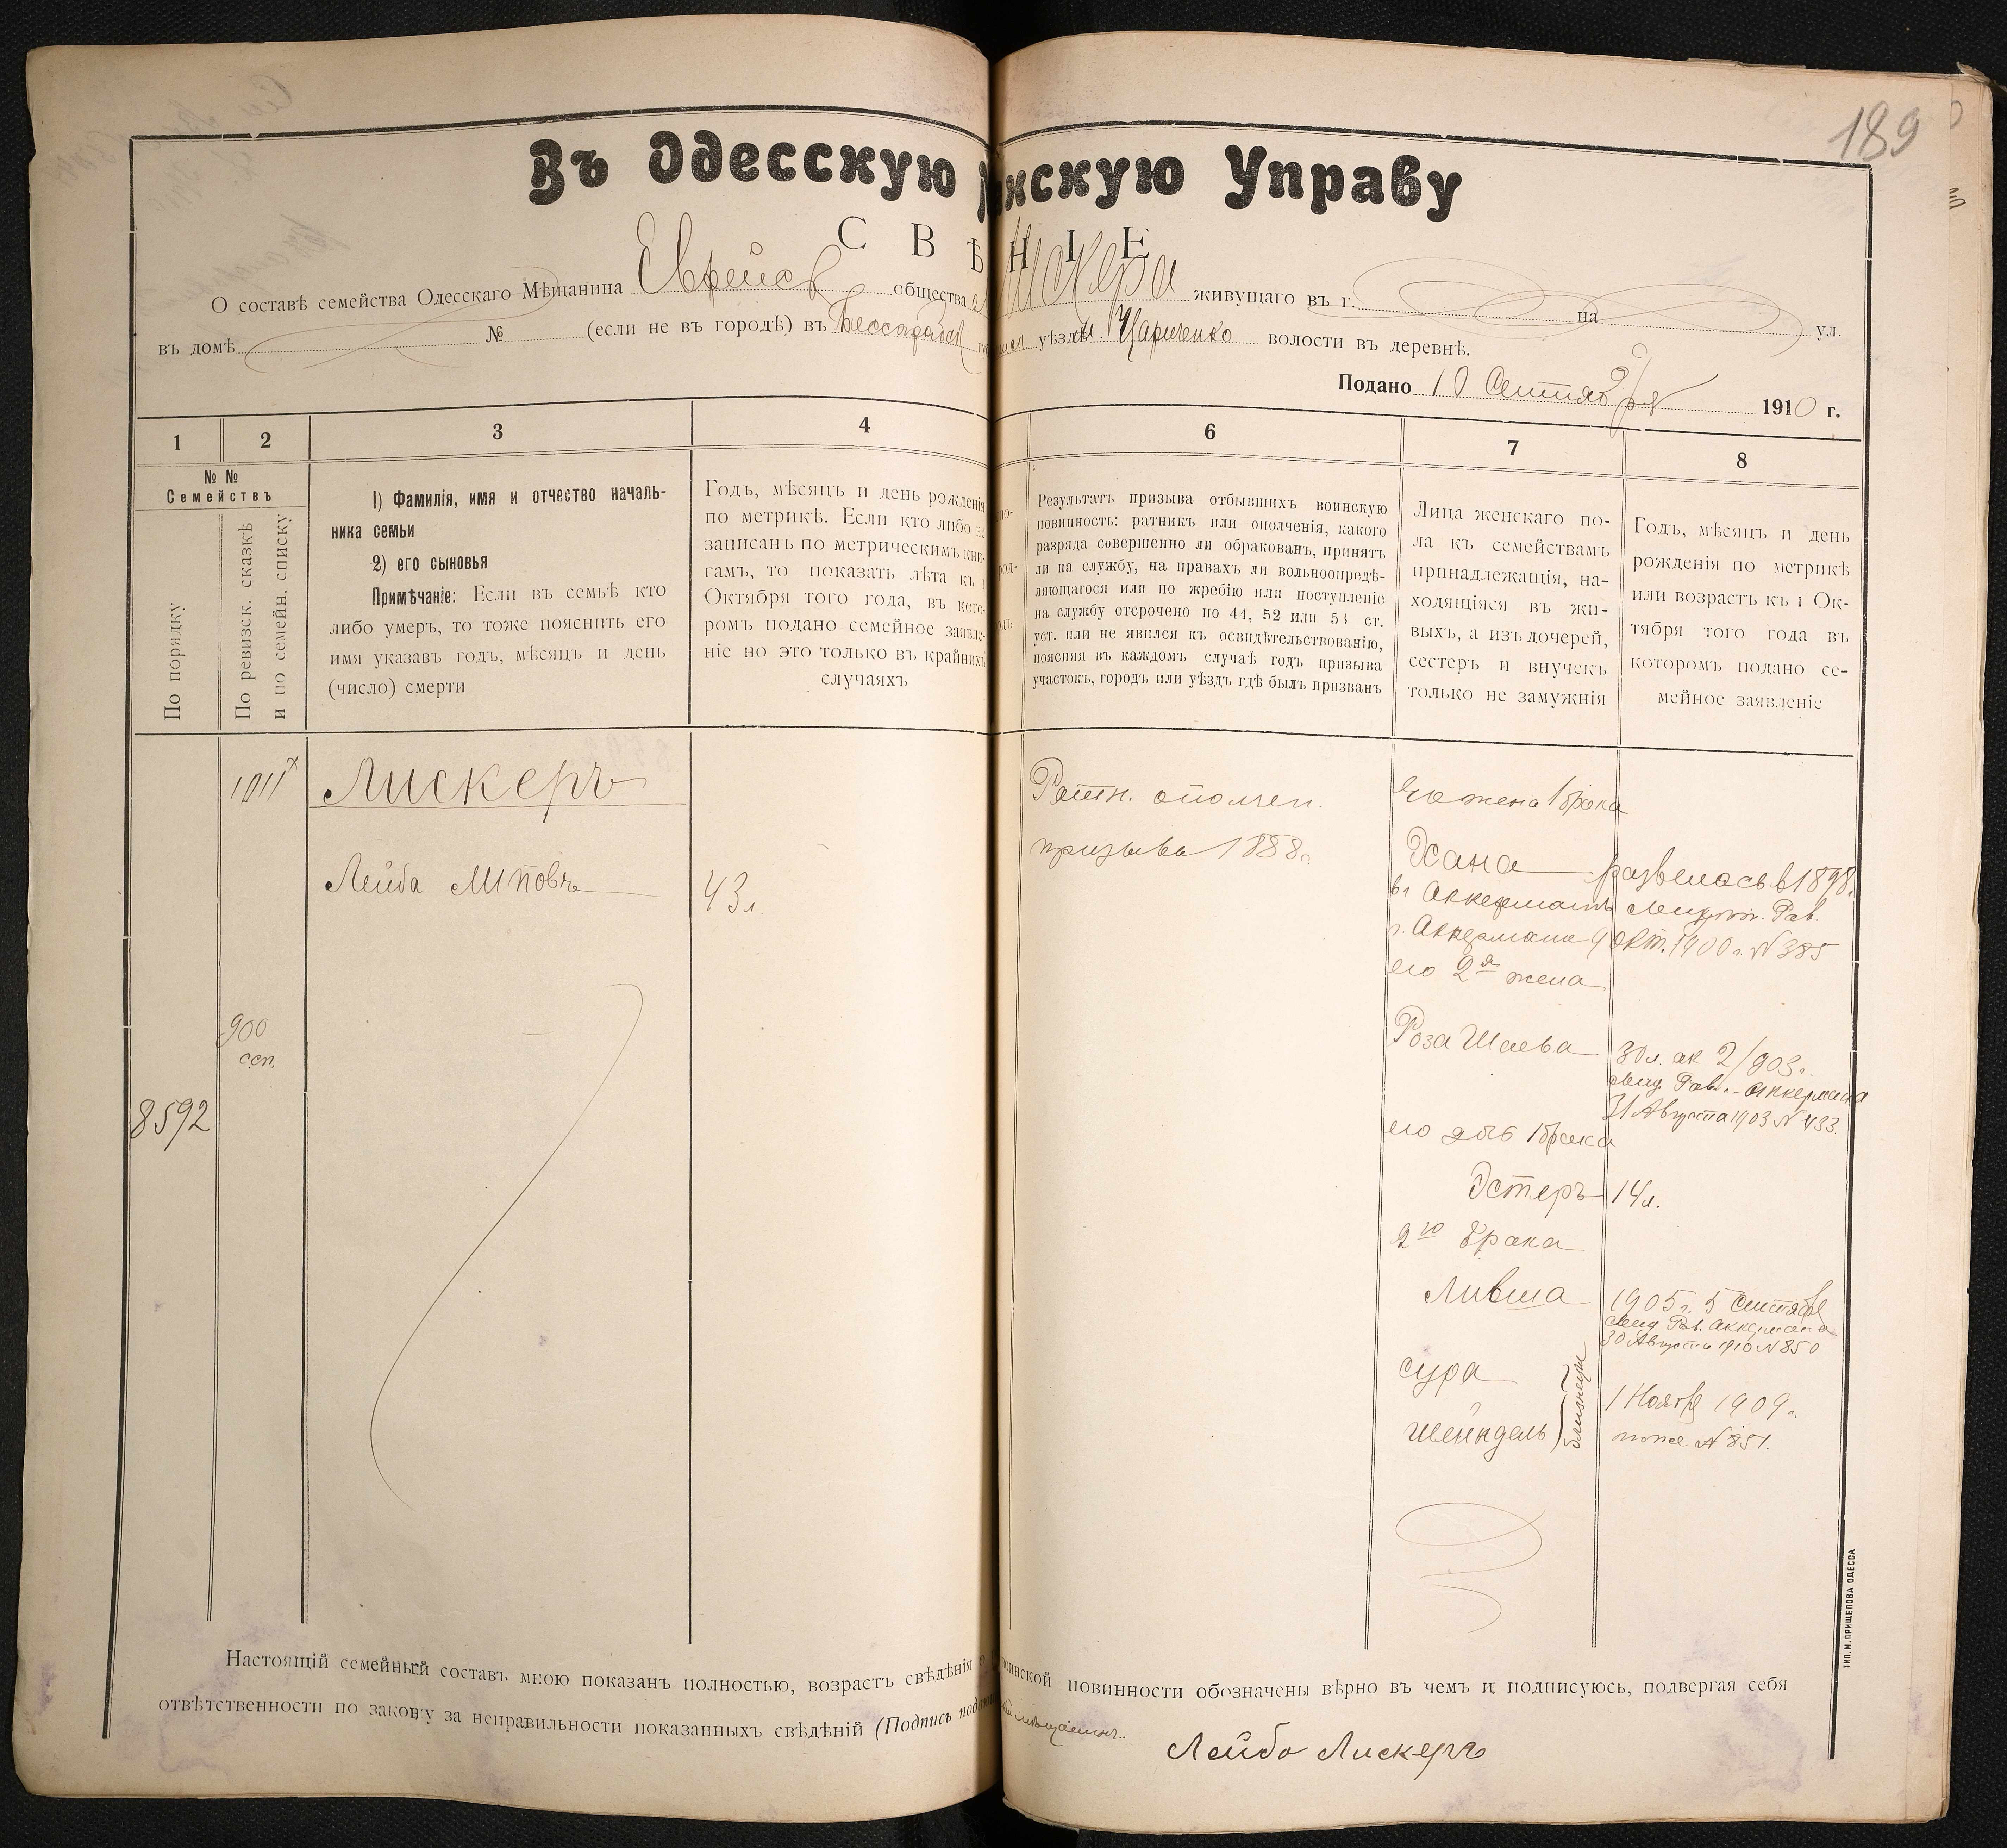 189
Въ Одесскую нскую Управу
С В Ѣ Н І Е
О составѣ семейства Одесскаго Мѣщанина Еврейск общества Лискера живущаго въ г. на ул.
въ домѣ № (если не въ городѣ) въ Бессарабск уѣзда м. Цариченко волости въ деревнѣ.
Подано 10 Сентября 1910 г.
1 2 3 4 6 7 8
№ №
Семействъ
По порядку
По ревизск. сказкѣ
и по семейн. списку
1) Фамилія, имя и отчество началь-
ника семьи
2) его сыновья
Примѣчаніе: Если въ семьѣ кто
либо умеръ, то тоже пояснить его
имя указавъ годъ, мѣсяцъ и день
(число) смерти
Годъ, мѣсяцъ и день рожденія
по метрикѣ. Если кто либо не
записанъ по метрическимъ кни-
гамъ, то показать лѣта къ 1
Октября того года, въ кото-
ромъ подано семейное заявле-
ніе но это только въ крайнихъ
случаяхъ
Результатъ призыва отбывшихъ воинскую
повинность: ратникъ или ополченія, какого
разряда совершенно ли обракованъ, принятъ
ли на службу, на правахъ ли вольноопредѣ-
ляющагося или по жребію или поступленіе
на службу отсрочено по 44, 52 или 53 ст.
уст. или не явился къ освидѣтельствованію,
поясняя въ каждомъ случаѣ годъ призыва
участокъ, городъ или уѣздъ гдѣ былъ призванъ
Лица женскаго по-
ла къ семействамъ
принадлежащія, на-
ходящіяся въ жи-
выхъ, а изъ дочерей,
сестеръ и внучекъ
только не замужнія
Годъ, мѣсяцъ и день
рожденія по метрикѣ
или возрастъ къ 1 Ок-
тября того года въ
которомъ подано се-
мейное заявленіе
1011 Лискеръ
Лейба Миповъ 43 л.
900
ссп.
8592
Ратн. ополчен.
призыва 1888 г.
Его жена 1 брака
Хана развелась в 1898 г.
въ Аккерманѣ Рав.
г. Аккермана 9 окт. 1900 г. № 385
его 2я жена
Роза Шаева 30 л. ак 2/903 г.
Рав. Аккермана
31 Августа 1903 № 433.
его дѣт 1 брака
Эстеръ 14 л.
2го брака
Лившa 1905 г. 5 Сентября
Рав. Аккермана
30 Августа 1910 № 850
Сура
Шейндель близнецы
1 Ноября 1909 г.
тоже № 851.
Настоящій семейный составъ мною показанъ полностью, возрастъ свѣдѣнія о воинской повинности обозначены вѣрно въ чемъ и подписуюсь, подвергая себя
отвѣтственности по закону за неправильности показанныхъ свѣдѣній (Подпись мѣщанинъ.
Лейба Лискеръ
ТИП. М. ПРИЩЕПОВА ОДЕССА